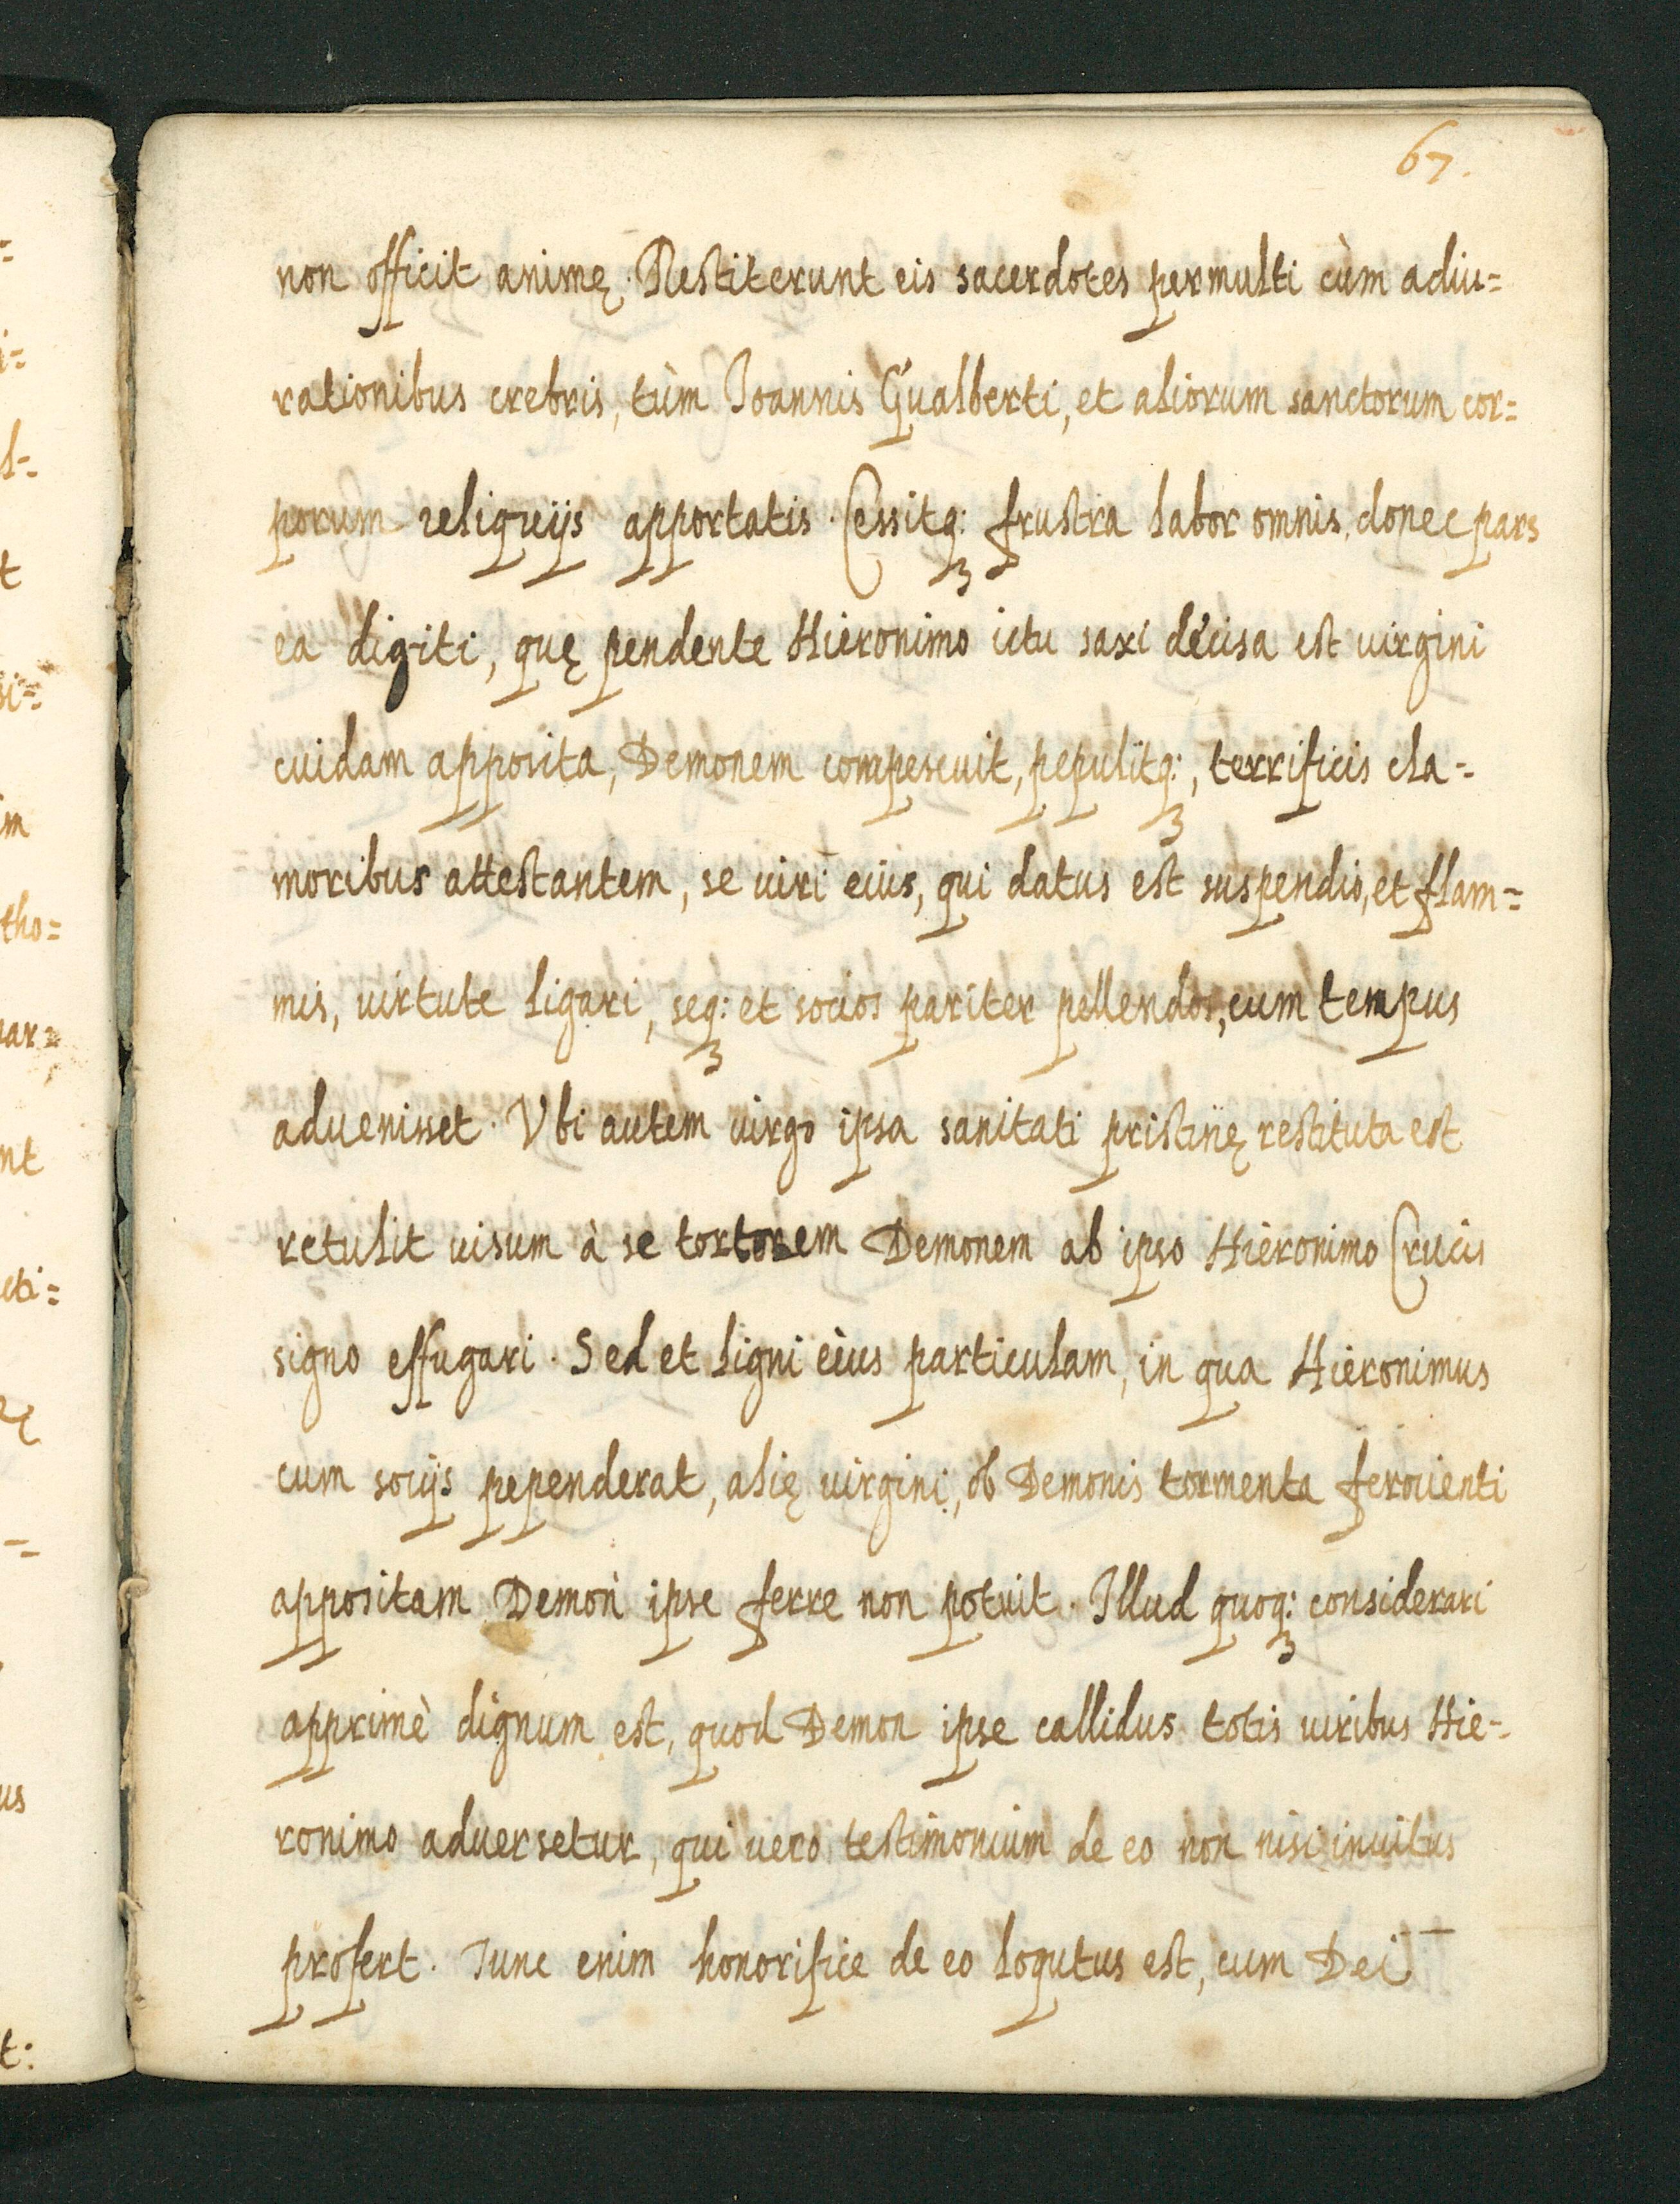 67.
non officit animę. Restiterunt eis sacerdotes permulti cùm adiu=
rationibus crebris, tùm Ioannis Gualberti, et aliorum sanctorum cor=
porum reliquijs apportatis. Cessitq: frustra labor omnis, donec pars
ea digiti, quę pendente Hieronimo ictu saxi décisa est uirgini
cuidam apposita, Demonem compescuit, pepulitq:, terrificis cla=
moribus attestantem, se uiri eius, qui datus est suspendio, et flam=
mis, uirtute ligari, seq: et socios pariter pellendos, cum tempus
aduenisset. Vbi autem uirgo ipsa sanitati pristinę restituta est
retulit uisum à se tortorem Demonem ab ipso Hieronimo Crucis
signo effugari. Sed et ligni eius particulam, in qua Hieronimus
cum socijs pependerat, alię uirgini, ob Demonis tormenta ferouienti
appositam Demon ipse ferre non potuit. Illud quoq: considerari
apprimè dignum est, quod Demon ipse callidus totis uiribus Hie=
ronimo aduersetur, qui uero testimonium de eo non nisi inuitus
profert. Tunc enim honorifice de eo loqutus est, cum Dei